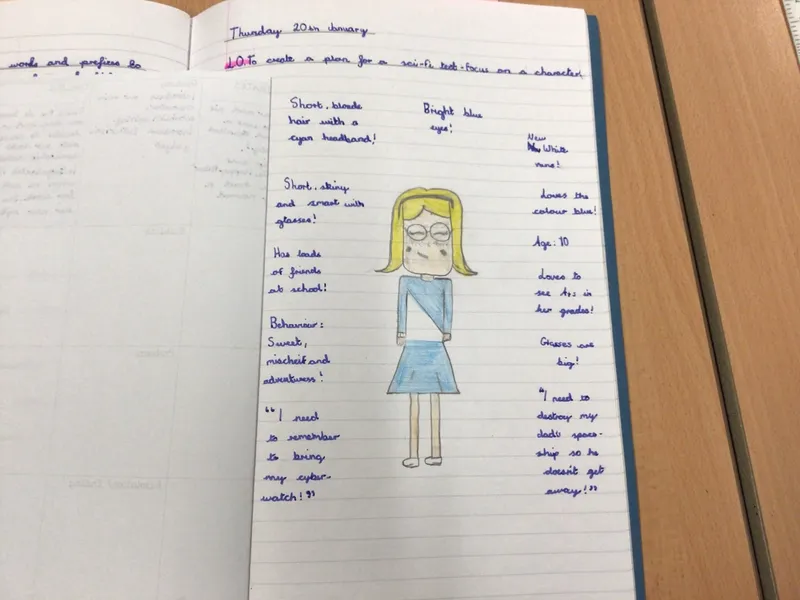 Thursday 20th January
words and prefixes to
L.O.To create a plan for a sci-fi text-focus on a character.
Short, blonde
hair with a
cyan headband!
Bright blue
eyes!
New
White
vans!
Short, skiny
and smart with
glasses!
Has loads
of friends
at school!
Behaviour:
Sweet,
mischeif and
adventuress!
"I need
to remember
to bring
my cyber-
watch!"
Loves the
colour blue!
Age: 10
Loves to
see A+s in
her grades!
Glasses are
big!
"I need to
destroy my
dads spaces-
ship so he
doesn't get
away!"